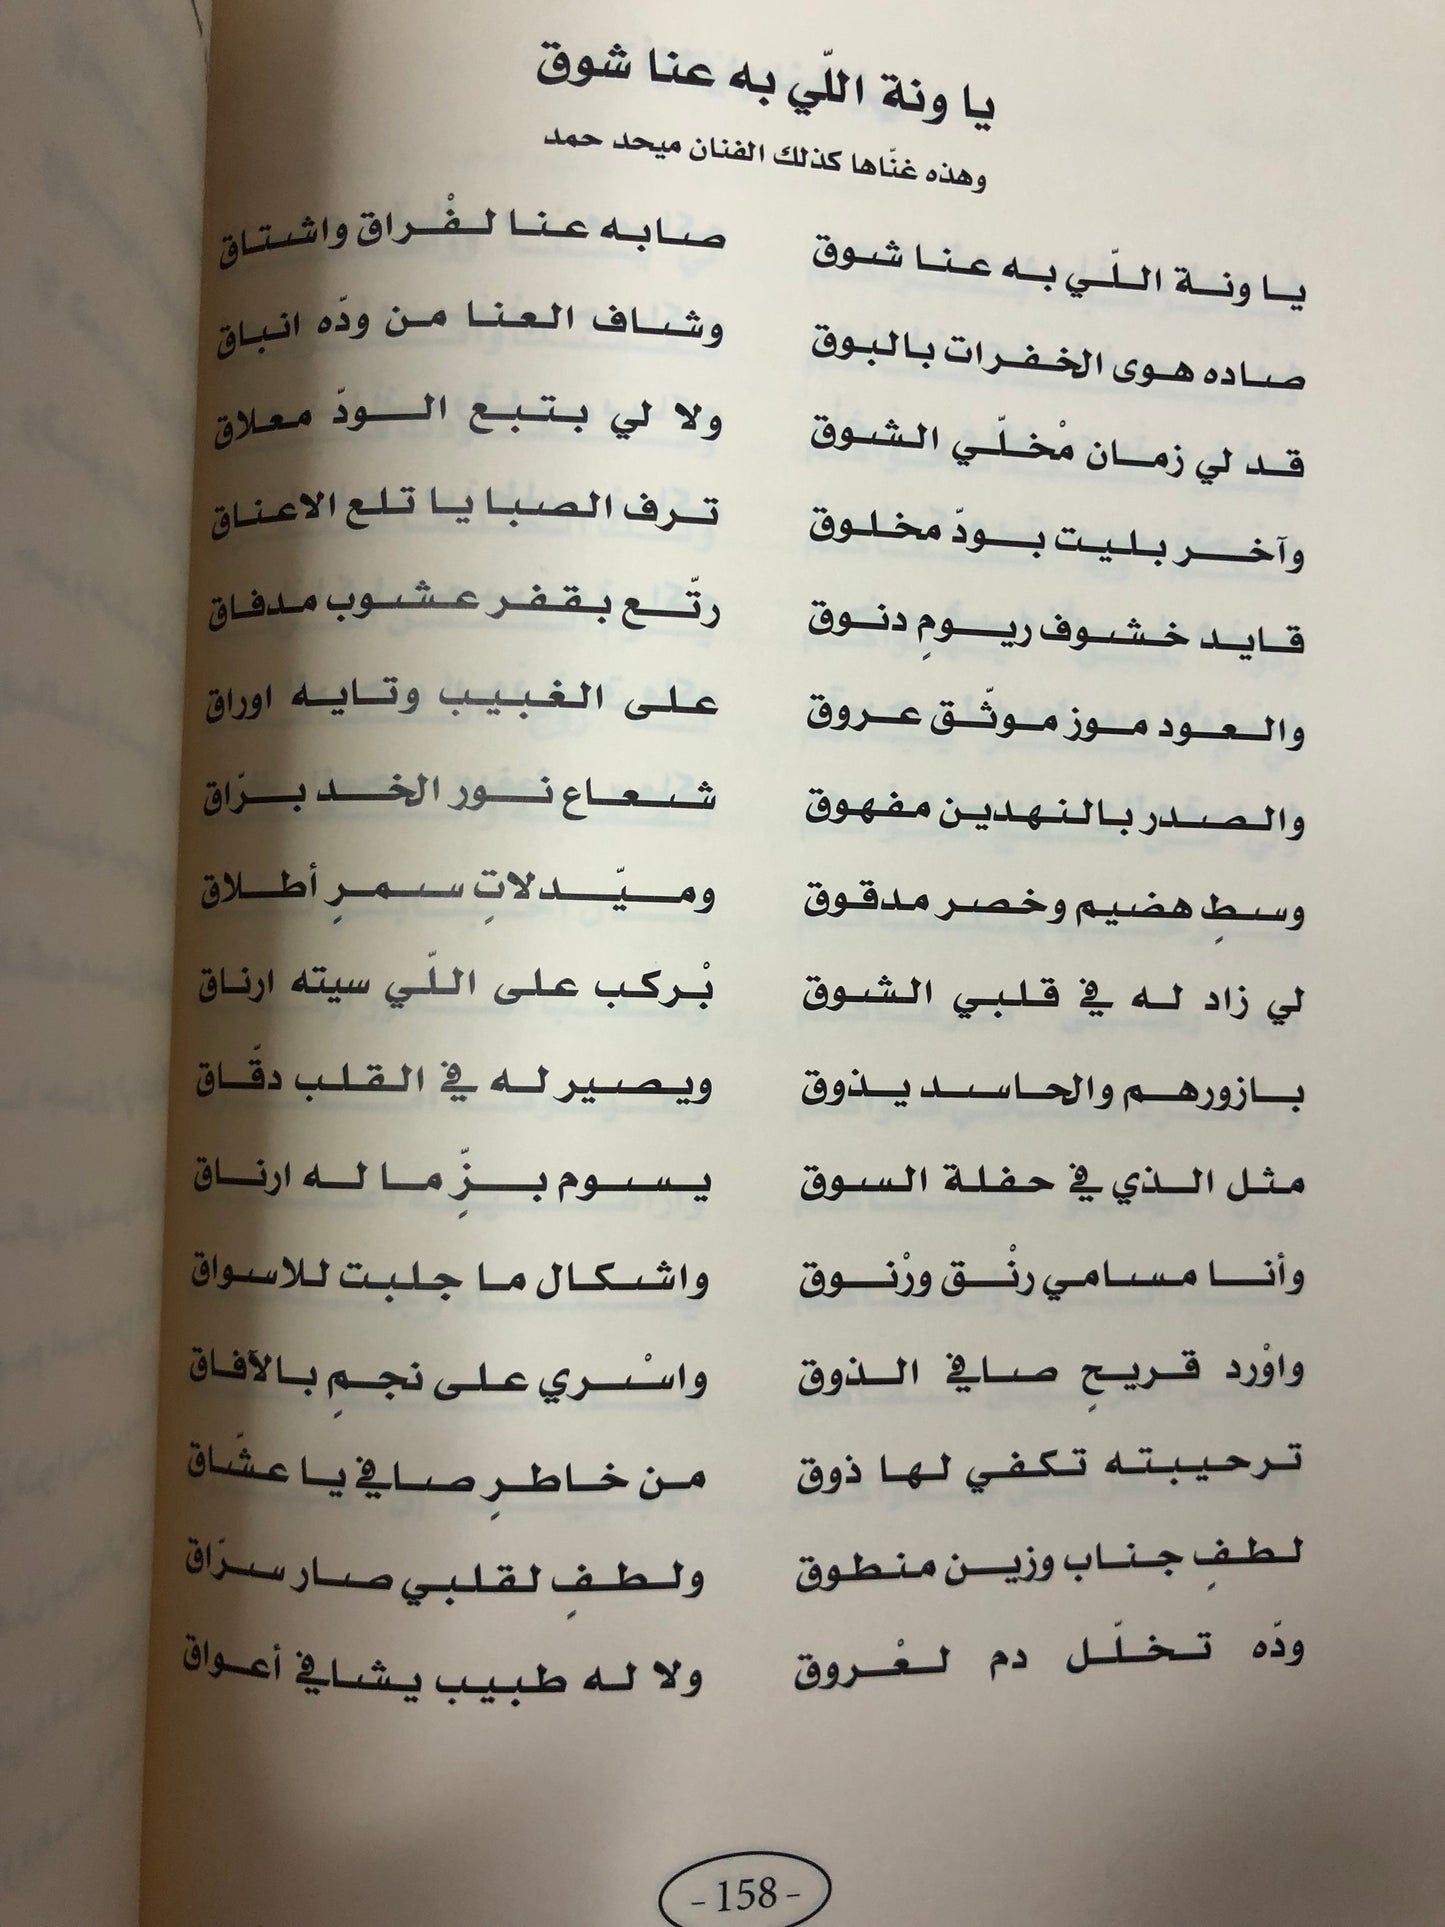 يا ونة اللّي به عنا شوق
وهذه غنّاها كذلك الفنان ميحد حمد
يا ونة اللّي به عنا شوق صابه عنا لفْراق واشتاق
صاده هوى الخفرات بالبوق وشاف العنا من ودّه انباق
قد لي زمان مْخلّي الشوق ولا لي بتبع الودّ معلاق
وآخر بليت بودّ مخلوق ترف الصبا يا تلع الاعناق
قايد خشوف ريومٍ دنوق رتّع بقفر عشوب مدفاق
والعود موز موثّق عروق على الغبيب وتايه اوراق
والصدر بالنهدين مفهوق شعاع نور الخد برّاق
وسطٍ هضيم وخصر مدقوق وميّدلاتٍ سمرٍ أطلاق
لي زاد له في قلبي الشوق بْركب على اللّي سيته ارناق
بازورهم والحاسد يذوق ويصير له في القلب دقّاق
مثل الذي في حفلة السوق يسوم بزٍّ ما له ارناق
وأنا مسامي رنْق ورْنوق واشكال ما جلبت للاسواق
واوْرد قريحٍ صافي الذوق واسْري على نجمٍ بالآفاق
ترحيبته تكفي لها ذوق من خاطرٍ صافي يا عشّاق
لطفٍ جناب وزين منطوق ولطفٍ لقلبي صار سرّاق
ودّه تخلّل دم لعْروق ولا له طبيب يشافي أعواق
- 158 -